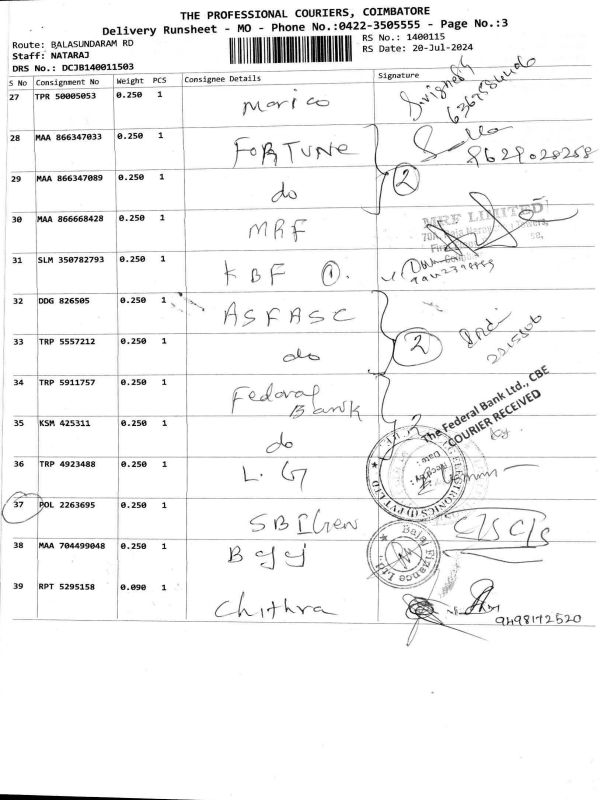 THE PROFESSIONAL COURIERS, COIMBATORE
Delivery Runsheet - MO - Phone No.:0422-3505555 - Page No.:3
Route: BALASUNDARAM RD
RS No.: 1400115
Staff: NATARAJ
RS Date: 20-Jul-2024
DRS No.: DCJB140011503
S No Consignment No Weight PCS Consignee Details Signature
27 TPR 50005053 0.250 1 Marico
28 MAA 866347033 0.250 1 FORTUNE
9629028258
29 MAA 866347089 0.250 1 do 2
30 MAA 866668428 0.250 1 MRF
MRF LIMITED
31 SLM 350782793 0.250 1 KBF 1.
32 DDG 826505 0.250 1 ASFASC
33 TRP 5557212 0.250 1 do 2
34 TRP 5911757 0.250 1 Federal Bank
The Federal Bank Ltd., CBE
COURIER RECEIVED
35 KSM 425311 0.250 1 do
36 TRP 4923488 0.250 1 L.G
ELECTRONICS (I) PVT LTD
37 POL 2263695 0.250 1 SBI Gen
C/S C/S
38 MAA 704499048 0.250 1 Bajaj
Bajaj Finance Ltd.
39 RPT 5295158 0.090 1 Chithra
9498172520